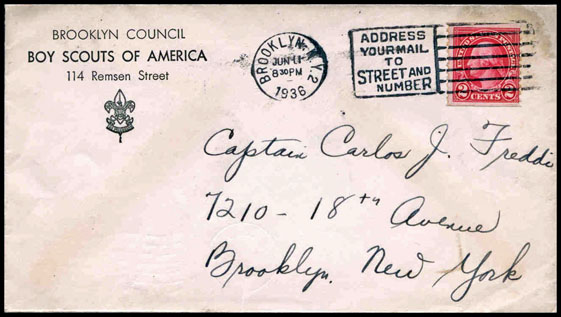 BROOKLYN COUNCIL
BOY SCOUTS OF AMERICA
114 Remsen Street
BROOKLYN, N.Y. 2
JUN 11
830 PM
1936
ADDRESS
YOUR MAIL
TO
STREET AND
NUMBER
2 CENTS 2
Captain Carlos J. Freddi
7210 - 18th Avenue
Brooklyn, New York